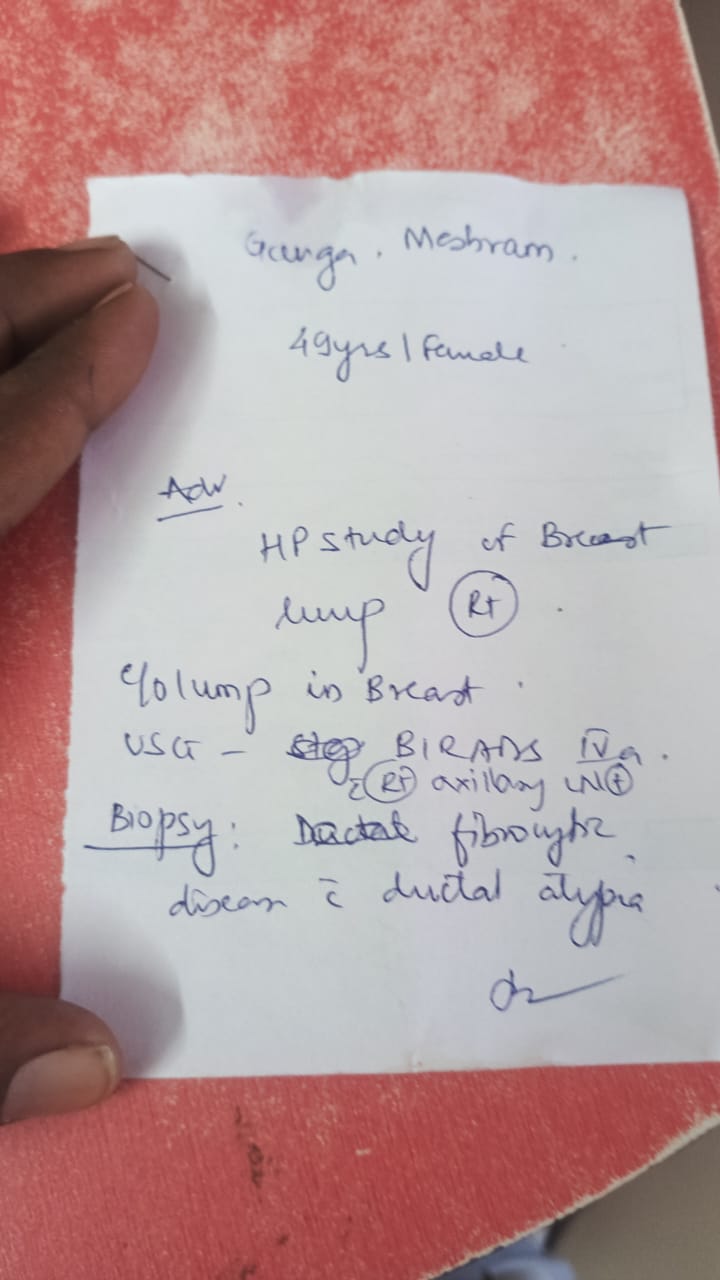 Ganga . Meshram .
49yrs / Female
Adv.
HP study of Breast
lump (Rt) .
c/o lump in Breast .
USG - BIRADS IVa .
c̄ (Rt) axillary LN (+)
Biopsy : Ductal fibrocystic
disease c̄ ductal atypia